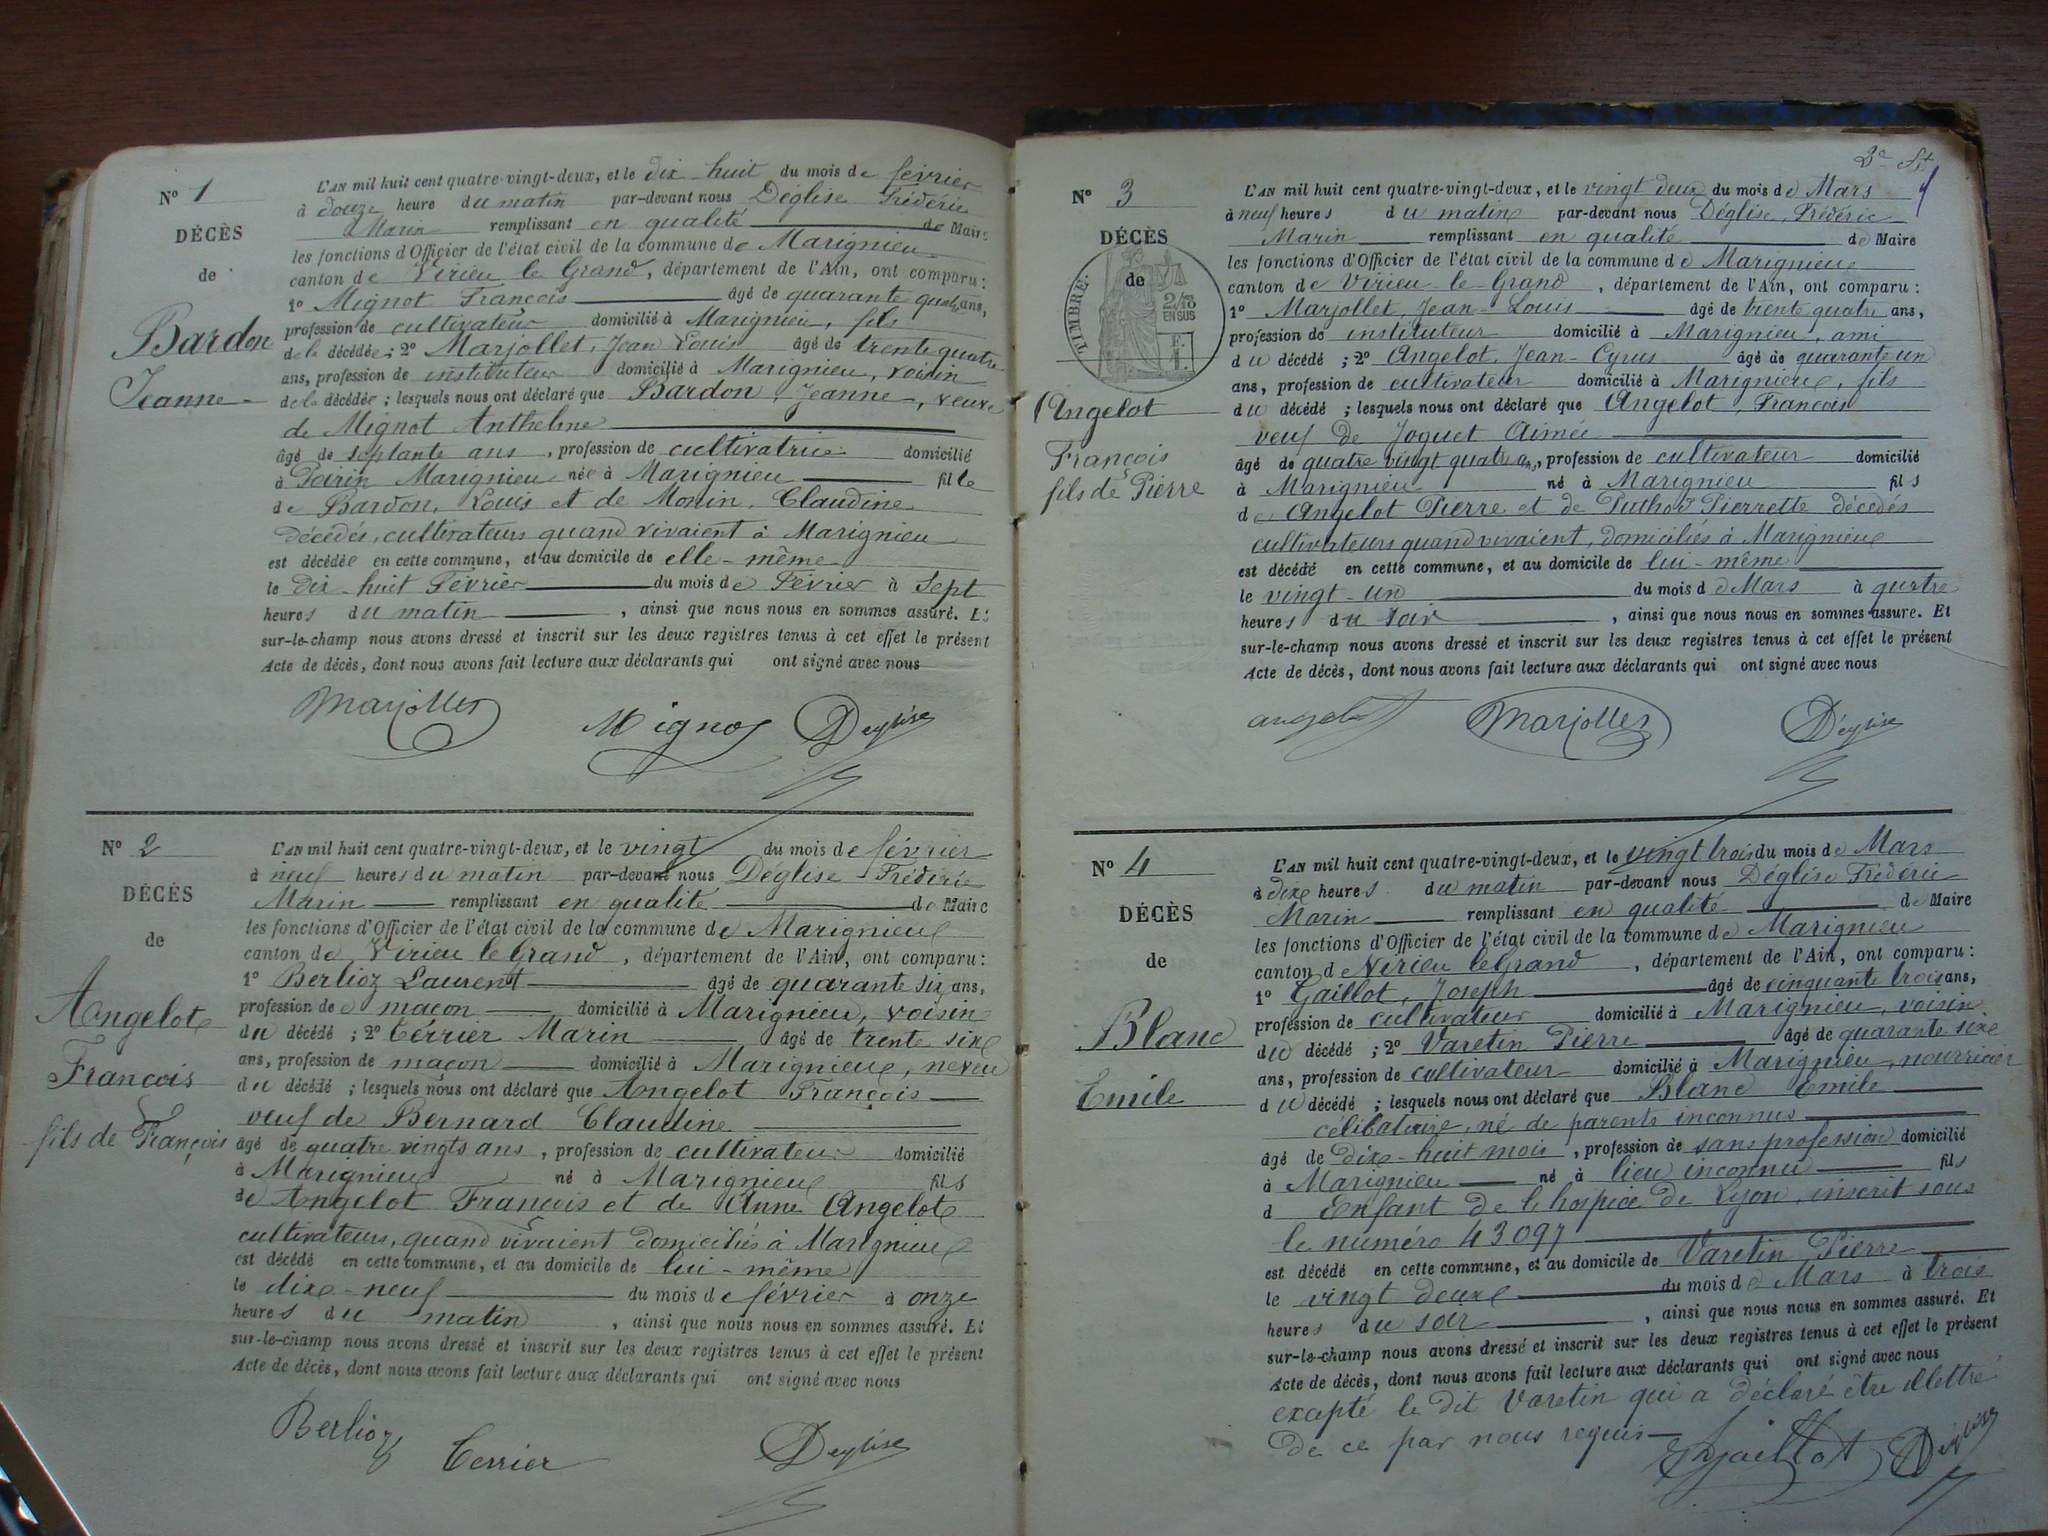 N° 1
DÉCÈS
de
Bardon
Jeanne
L'AN mil huit cent quatre-vingt-deux, et le dix-huit du mois de février
à douze heure du matin par-devant nous Déglise Frédéric
Marin remplissant en qualité de Maire
les fonctions d'Officier de l'état civil de la commune de Marignieu
canton de Virieu le Grand, département de l'Ain, ont comparu :
1° Mignot François âgé de quarante quatre ans,
profession de cultivateur domicilié à Marignieu, fils
de la décédée ; 2° Marjollet, Jean Louis âgé de trente quatre
ans, profession de instituteur domicilié à Marignieu, voisin
de la décédée ; lesquels nous ont déclaré que Bardon, Jeanne, veuve
de Mignot Anthelme
âgé de septante ans, profession de cultivatrice domicilié
à Poirin Marignieu née à Marignieu fille
de Bardon, Louis et de Monin, Claudine
décédés, cultivateurs quand vivaient à Marignieu
est décédée en cette commune, et au domicile de elle-même
le dix-huit Février du mois de Février à sept
heures du matin, ainsi que nous nous en sommes assuré. Et
sur-le-champ nous avons dressé et inscrit sur les deux registres tenus à cet effet le présent
Acte de décès, dont nous avons fait lecture aux déclarants qui ont signé avec nous
Marjollet Mignot Déglise
N° 2
DÉCÈS
de
Angelot
François
fils de François
L'AN mil huit cent quatre-vingt-deux, et le vingt du mois de février
à neuf heures du matin par-devant nous Déglise Frédéric
Marin remplissant en qualité de Maire
les fonctions d'Officier de l'état civil de la commune de Marignieu
canton de Virieu le Grand, département de l'Ain, ont comparu :
1° Berlioz Laurent âgé de quarante six ans,
profession de maçon domicilié à Marignieu, voisin
du décédé ; 2° Terrier Marin âgé de trente six
ans, profession de maçon domicilié à Marignieu, neveu
du décédé ; lesquels nous ont déclaré que Angelot François
veuf de Bernard Claudine
âgé de quatre vingts ans, profession de cultivateur domicilié
à Marignieu né à Marignieu fils
de Angelot François et de Anne Angelot
cultivateurs, quand vivaient domiciliés à Marignieu
est décédé en cette commune, et au domicile de lui-même
le dix-neuf du mois de février à onze
heures du matin, ainsi que nous nous en sommes assuré. Et
sur-le-champ nous avons dressé et inscrit sur les deux registres tenus à cet effet le présent
Acte de décès, dont nous avons fait lecture aux déclarants qui ont signé avec nous
Berlioz Terrier Déglise
3e ft
N° 3
DÉCÈS
de
TIMBRE:
2/10
EN SUS
F.
1.
Angelot
François
fils de Pierre
L'AN mil huit cent quatre-vingt-deux, et le vingt deux du mois de Mars
à neuf heures du matin par-devant nous Déglise, Frédéric
Marin remplissant en qualité de Maire
les fonctions d'Officier de l'état civil de la commune de Marignieu
canton de Virieu-le-Grand, département de l'Ain, ont comparu :
1° Marjollet, Jean-Louis âgé de trente quatre ans,
profession de instituteur domicilié à Marignieu, ami
du décédé ; 2° Angelot, Jean-Cyrus âgé de quarante un
ans, profession de cultivateur domicilié à Marignieu, fils
du décédé ; lesquels nous ont déclaré que Angelot, François
veuf de Joguet Aimée
âgé de quatre vingt quatre ans, profession de cultivateur domicilié
à Marignieu né à Marignieu fils
de Angelot Pierre et de Puthod Pierrette décédés
cultivateurs quand vivaient, domiciliés à Marignieu
est décédé en cette commune, et au domicile de lui-même
le vingt-un du mois de Mars à quatre
heures du soir, ainsi que nous nous en sommes assuré. Et
sur-le-champ nous avons dressé et inscrit sur les deux registres tenus à cet effet le présent
Acte de décès, dont nous avons fait lecture aux déclarants qui ont signé avec nous
angelot Marjollet Déglise
N° 4
DÉCÈS
de
Blanc
Emile
L'AN mil huit cent quatre-vingt-deux, et le vingt trois du mois de Mars
à dix heures du matin par-devant nous Déglise Frédéric
Marin remplissant en qualité de Maire
les fonctions d'Officier de l'état civil de la commune de Marignieu
canton de Virieu le Grand, département de l'Ain, ont comparu :
1° Gaillot, Joseph âgé de cinquante trois ans,
profession de cultivateur domicilié à Marignieu, voisin
du décédé ; 2° Varetin Pierre âgé de quarante six
ans, profession de cultivateur domicilié à Marignieu, nourricier
du décédé ; lesquels nous ont déclaré que Blanc Emile
célibataire, né de parents inconnus
âgé de dix-huit mois, profession de sans profession domicilié
à Marignieu né à lieu inconnu fils
d Enfant de l'hospice de Lyon, inscrit sous
le numéro 43097
est décédé en cette commune, et au domicile de Varetin Pierre
le vingt deux du mois de Mars à trois
heures du soir, ainsi que nous nous en sommes assuré. Et
sur-le-champ nous avons dressé et inscrit sur les deux registres tenus à cet effet le présent
Acte de décès, dont nous avons fait lecture aux déclarants qui ont signé avec nous
excepté le dit Varetin qui a déclaré être illettré
de ce par nous requis
Gaillot Déglise